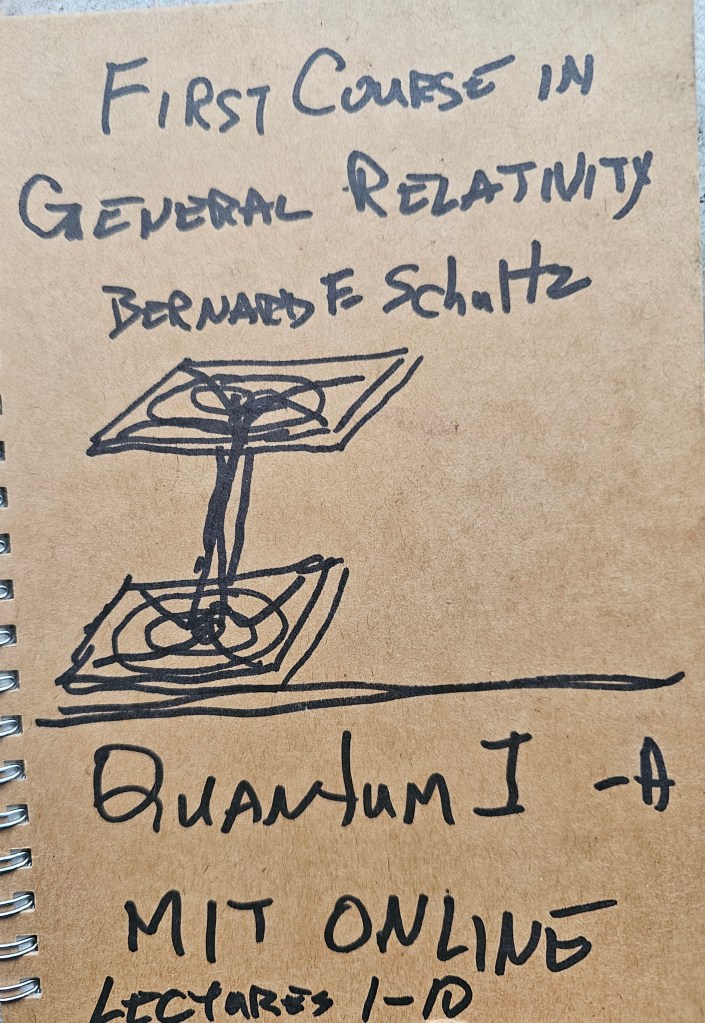 FIRST COURSE IN
GENERAL RELATIVITY
BERNARD F. Schultz
QUANTUM I -A
MIT ONLINE
LECTURES 1-10